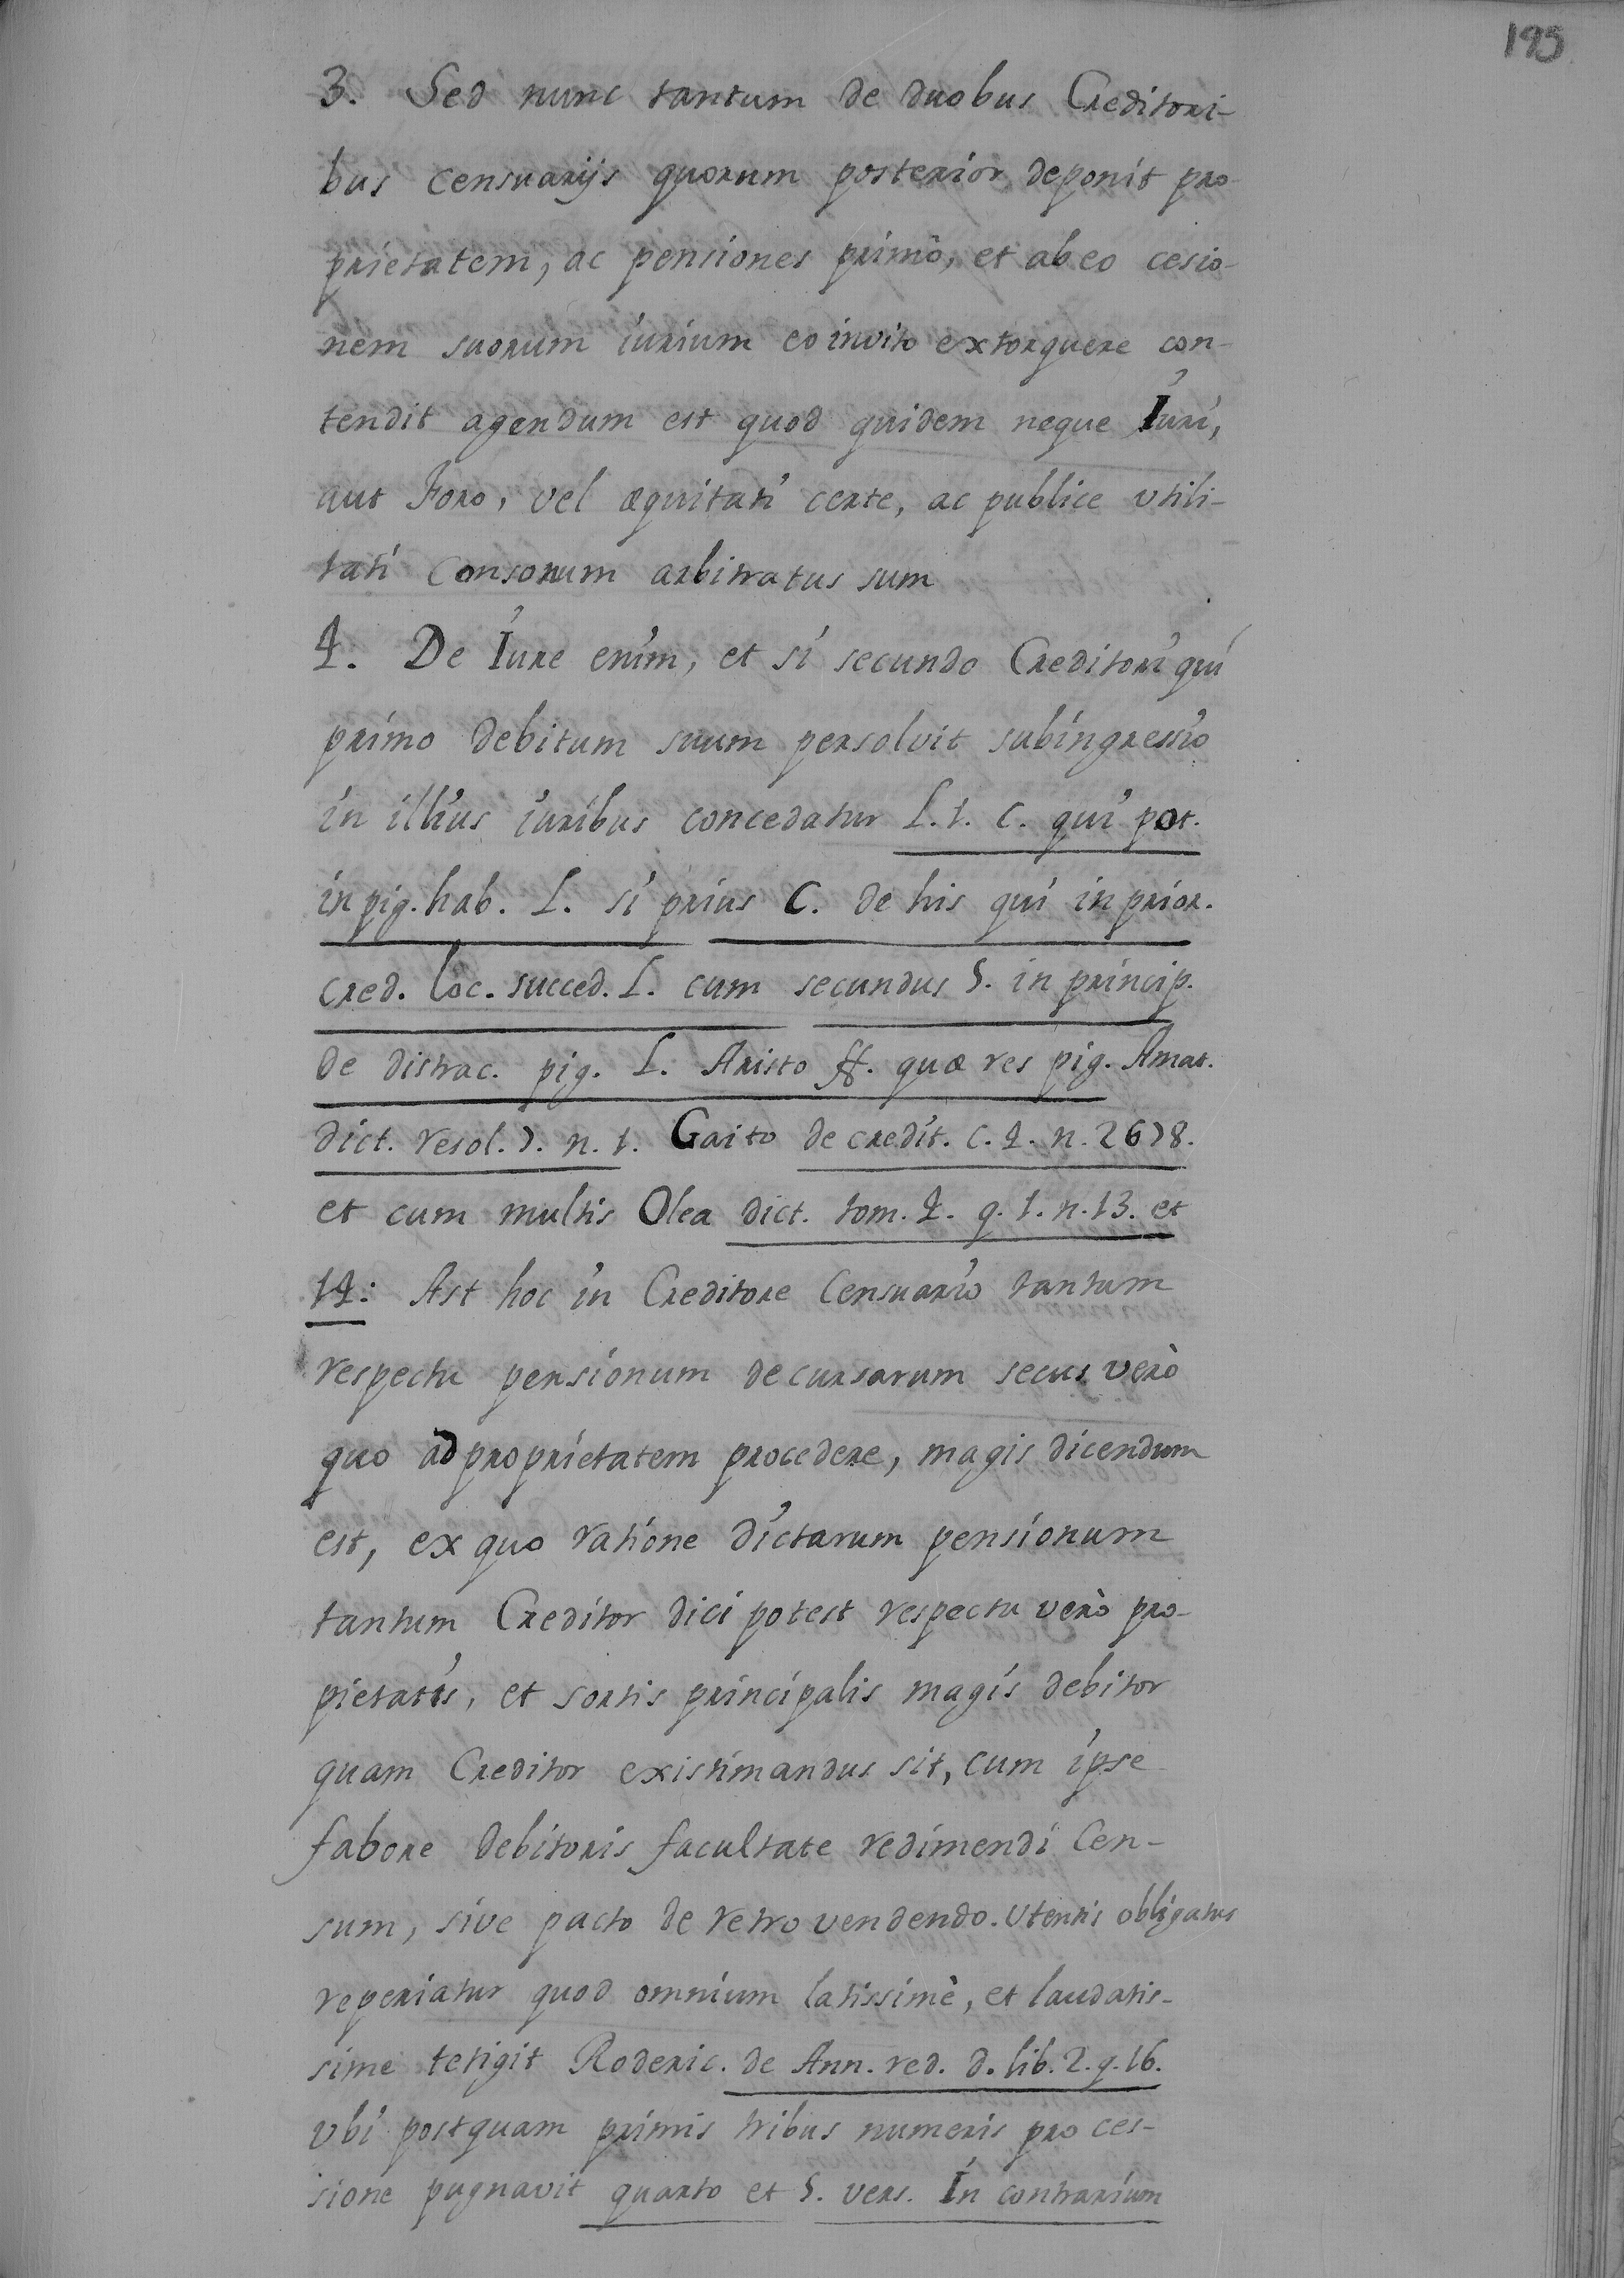 195
3. Sed nunc tantum de duobus Creditori-
bus censuarijs quorum posterior deponit pro-
prietatem, ac pensiones primò, et ab eo cesio-
nem suorum iurium eo invito extorquere con-
tendit agendum est quod quidem neque Iuri,
aut Foro, vel æquitati certe, ac publice utili-
tati Consonum arbitratus sum
4. De Iure enim, et si secundo Creditori qui
primo debitum suum persolvit subingressio
in illius iuribus concedatur L. 1. C. qui pot.
in pig. hab. L. si prius C. de his qui in prior.
cred. loc. succed. L. cum secundus 5. in princip.
de distrac. pig. L. Aristo ff. quæ res pig. Amat.
dict. resol. 7. n. 1. Gaito de credit. c. 4. n. 2678.
et cum multis Olea dict. tom. 4. q. 1. n. 13. et
14: Ast hoc in Creditore Censuario tantum
respectu pensionum decursarum secus verò
quo ad proprietatem procedere, magis dicendum
est, ex quo ratione dictarum pensionum
tantum Creditor dici potest respectu verò pro-
pietatis, et sortis principalis magis debitor
quam Creditor existimandus sit, cum ipse
fabore debitoris facultate redimendi Cen-
sum, sive pacto de retro vendendo. Utentis obligatus
reperiatur quod omnium latissimè, et laudatis-
sime tetigit Roderic. de Ann. red. d. lib. 2. q. 16.
vbi postquam primis tribus numeris pro ces-
sione pugnavit quarto et 5. vers. In contrarium